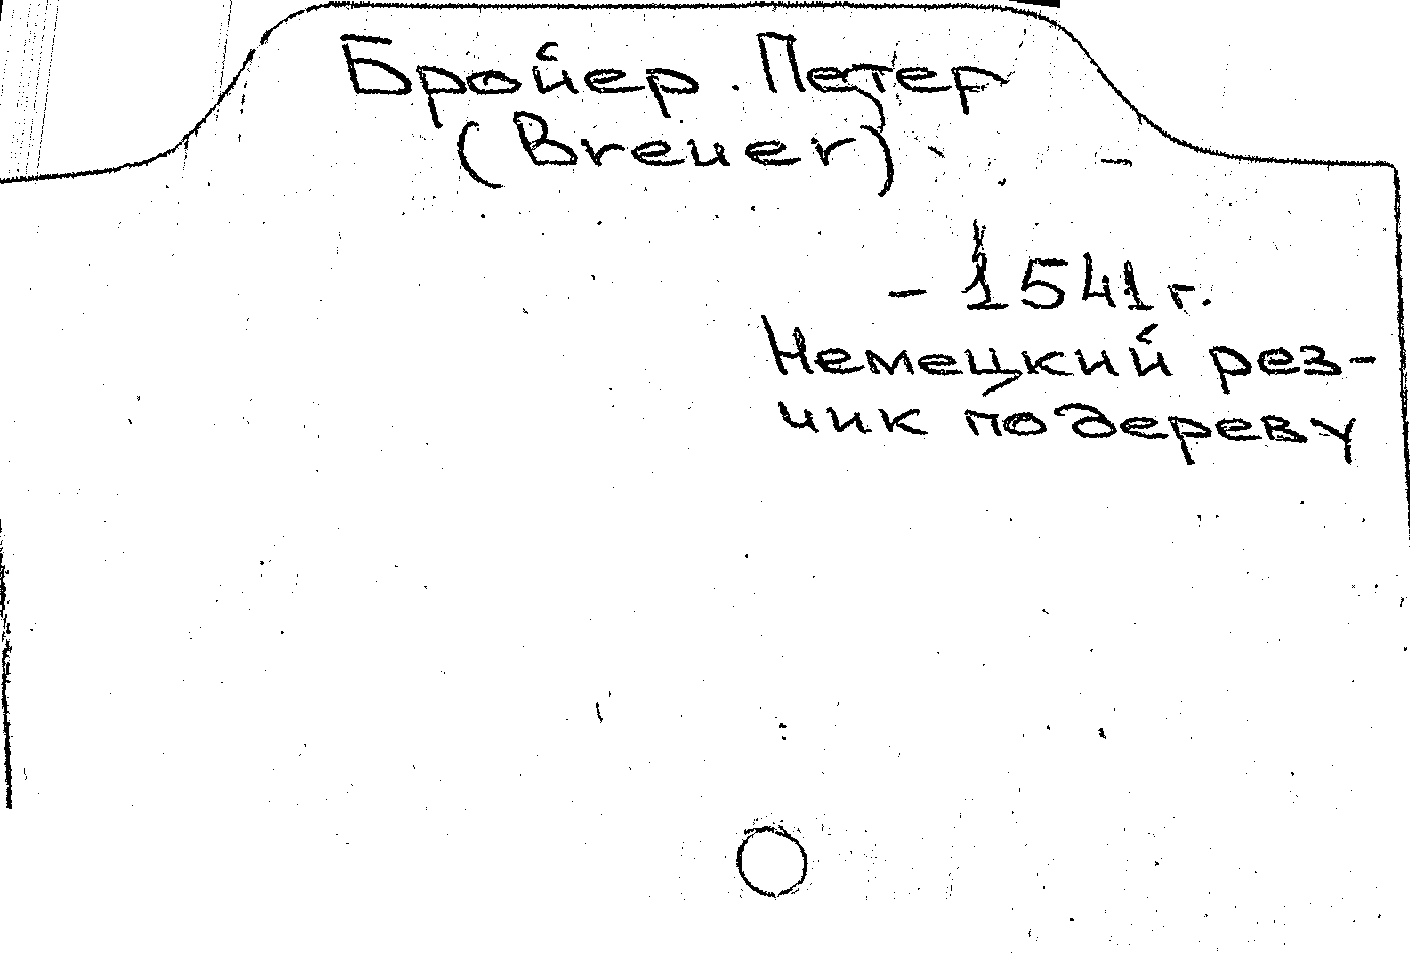 Бройер. Петер
(Breuer)
- 1541 г.
Немецкий рез-
чик по дереву